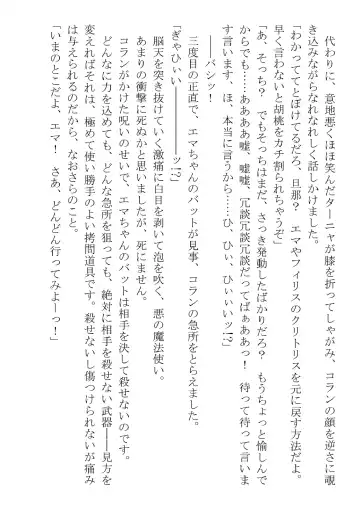 代わりに、意地悪くほほ笑んだターニャが膝を折ってしゃがみ、コランの顔を逆さに覗
き込みながらなれなれしく話しかけました。
「わかっててとぼけてるだろ、旦那？　エマやフィリスのクリトリスを元に戻す方法だよ。
早く言わないと胡桃をカチ割られちゃうぞ」
「あ、そっち？　でもそっちはまだ、さっき発動したばかりだろ？　もうちょっと愉しんで
からでも……ああああ嘘、嘘嘘、冗談冗談冗談だってばぁああっ！　待って待って言いま
す言います、ほ、本当に言うから……ひ、ひぃ、ひぃぃいッ!?」
――バシッ！
「ぎゃひぃい――――ッ!?」
三度目の正直で、エマちゃんのバットが見事、コランの急所をとらえました。
脳天を突き抜けていく激痛に白目を剥いて泡を吹く、悪の魔法使い。
あまりの衝撃に死ぬかと思いましたが、死にません。
コランがかけた呪いのせいで、エマちゃんのバットは相手を決して殺せないのです。
どんなに力を込めても、どんな急所を狙っても、絶対に相手を殺せない武器――見方を
変えればそれは、極めて使い勝手のよい拷問道具です。殺せないし傷つけられないが痛み
は与えられるのだから、なおさらのこと。
「いまのとこだよ、エマ！　さあ、どんどん行ってみよーっ！」